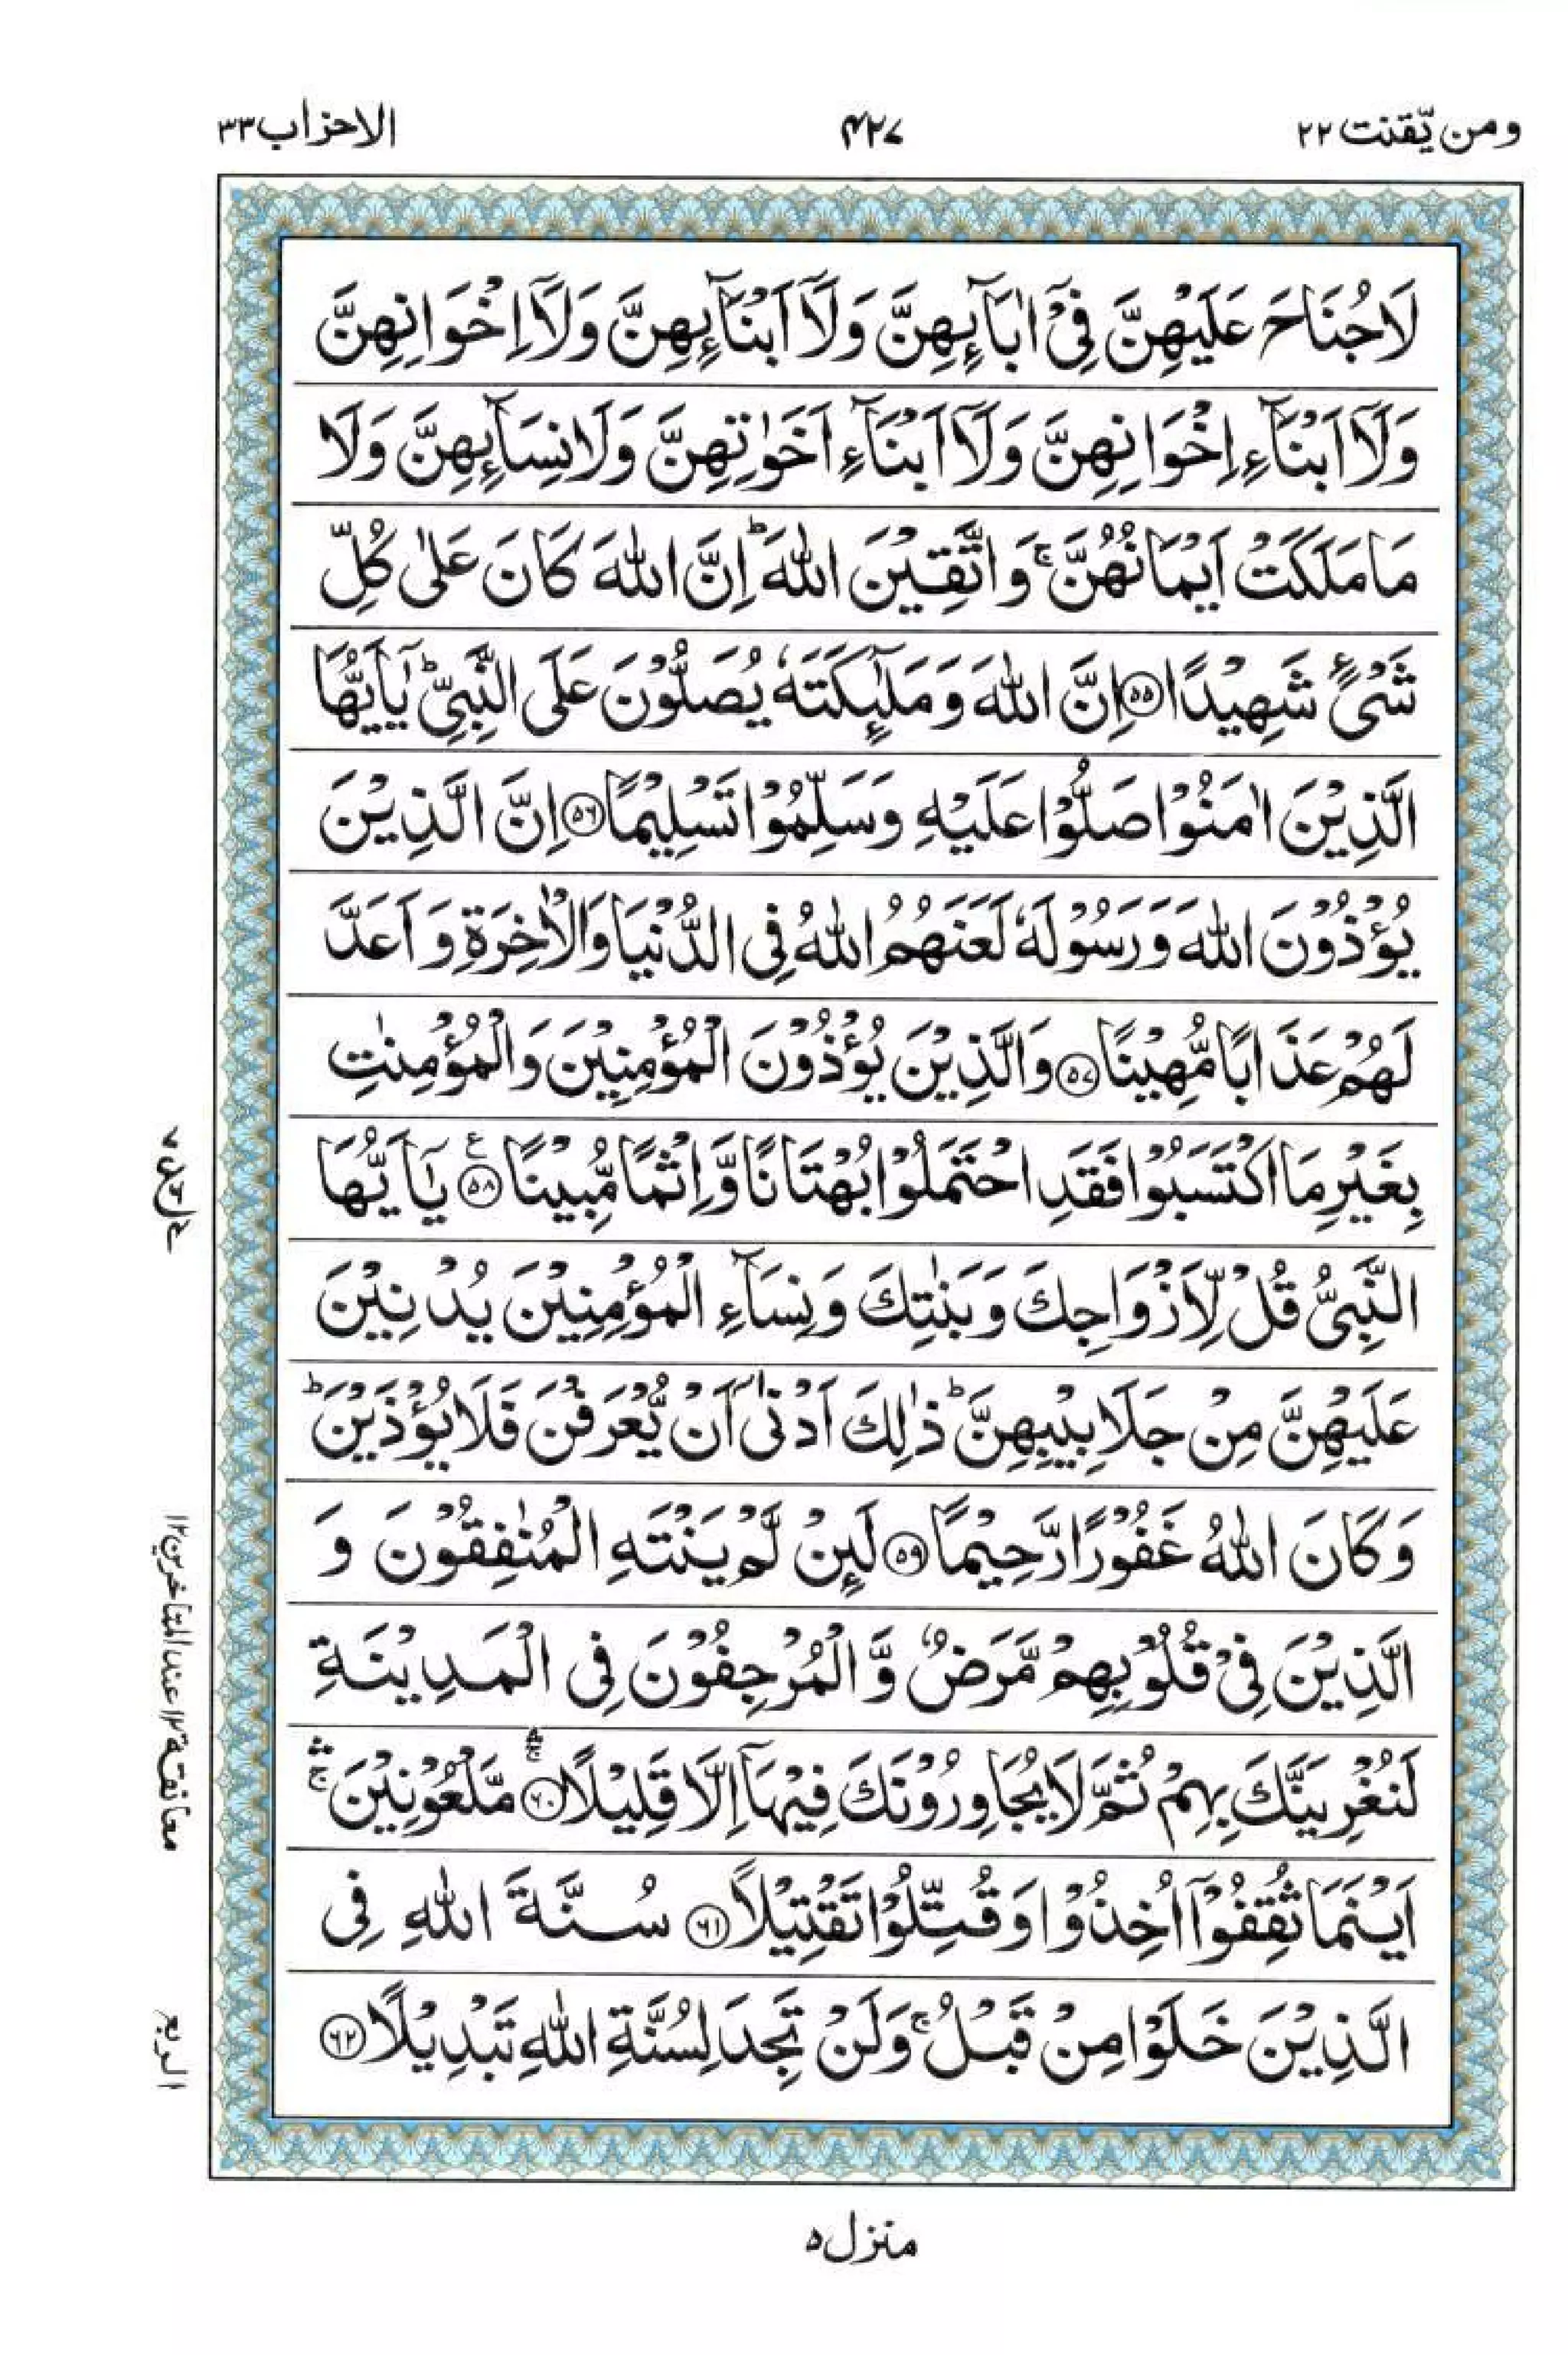 ومن يّقنت ٢٢
٤٢٧
الاحزاب ٣٣
لَا جُنَاحَ عَلَيْهِنَّ فِيْٓ اٰبَآئِهِنَّ وَلَآ اَبْنَآئِهِنَّ وَلَآ اِخْوَانِهِنَّ
وَلَآ اَبْنَآءِ اِخْوَانِهِنَّ وَلَآ اَبْنَآءِ اَخَوٰتِهِنَّ وَلَا نِسَآئِهِنَّ وَلَا
مَا مَلَكَتْ اَيْمَانُهُنَّ ۚ وَاتَّقِيْنَ اللّٰهَ ؕ اِنَّ اللّٰهَ كَانَ عَلٰى كُلِّ
شَيْءٍ شَهِيْدًا ﴿۵۵﴾ اِنَّ اللّٰهَ وَمَلٰٓئِكَتَهٗ يُصَلُّوْنَ عَلَى النَّبِيِّ ؕ يٰٓاَيُّهَا
الَّذِيْنَ اٰمَنُوْا صَلُّوْا عَلَيْهِ وَسَلِّمُوْا تَسْلِيْمًا ﴿۵۶﴾ اِنَّ الَّذِيْنَ
يُؤْذُوْنَ اللّٰهَ وَرَسُوْلَهٗ لَعَنَهُمُ اللّٰهُ فِي الدُّنْيَا وَالْاٰخِرَةِ وَاَعَدَّ
لَهُمْ عَذَابًا مُّهِيْنًا ﴿۵۷﴾ وَالَّذِيْنَ يُؤْذُوْنَ الْمُؤْمِنِيْنَ وَالْمُؤْمِنٰتِ
بِغَيْرِ مَا اكْتَسَبُوْا فَقَدِ احْتَمَلُوْا بُهْتَانًا وَّاِثْمًا مُّبِيْنًا ﴿۵۸﴾ ع يٰٓاَيُّهَا
النَّبِيُّ قُلْ لِّاَزْوَاجِكَ وَبَنٰتِكَ وَنِسَآءِ الْمُؤْمِنِيْنَ يُدْنِيْنَ
عَلَيْهِنَّ مِنْ جَلَابِيْبِهِنَّ ؕ ذٰلِكَ اَدْنٰٓى اَنْ يُّعْرَفْنَ فَلَا يُؤْذَيْنَ ؕ
وَكَانَ اللّٰهُ غَفُوْرًا رَّحِيْمًا ﴿۵۹﴾ لَئِنْ لَّمْ يَنْتَهِ الْمُنٰفِقُوْنَ وَ
الَّذِيْنَ فِيْ قُلُوْبِهِمْ مَّرَضٌ وَّالْمُرْجِفُوْنَ فِي الْمَدِيْنَةِ
لَنُغْرِيَنَّكَ بِهِمْ ثُمَّ لَا يُجَاوِرُوْنَكَ فِيْهَآ اِلَّا قَلِيْلًا ﴿۶۰﴾ مَّلْعُوْنِيْنَ ۛۚ
اَيْنَمَا ثُقِفُوْٓا اُخِذُوْا وَقُتِّلُوْا تَقْتِيْلًا ﴿۶۱﴾ سُنَّةَ اللّٰهِ فِي
الَّذِيْنَ خَلَوْا مِنْ قَبْلُ ۚ وَلَنْ تَجِدَ لِسُنَّةِ اللّٰهِ تَبْدِيْلًا ﴿۶۲﴾
معانقة ١٢ عند المتاخرين ١٢
الربع
منزل ۵